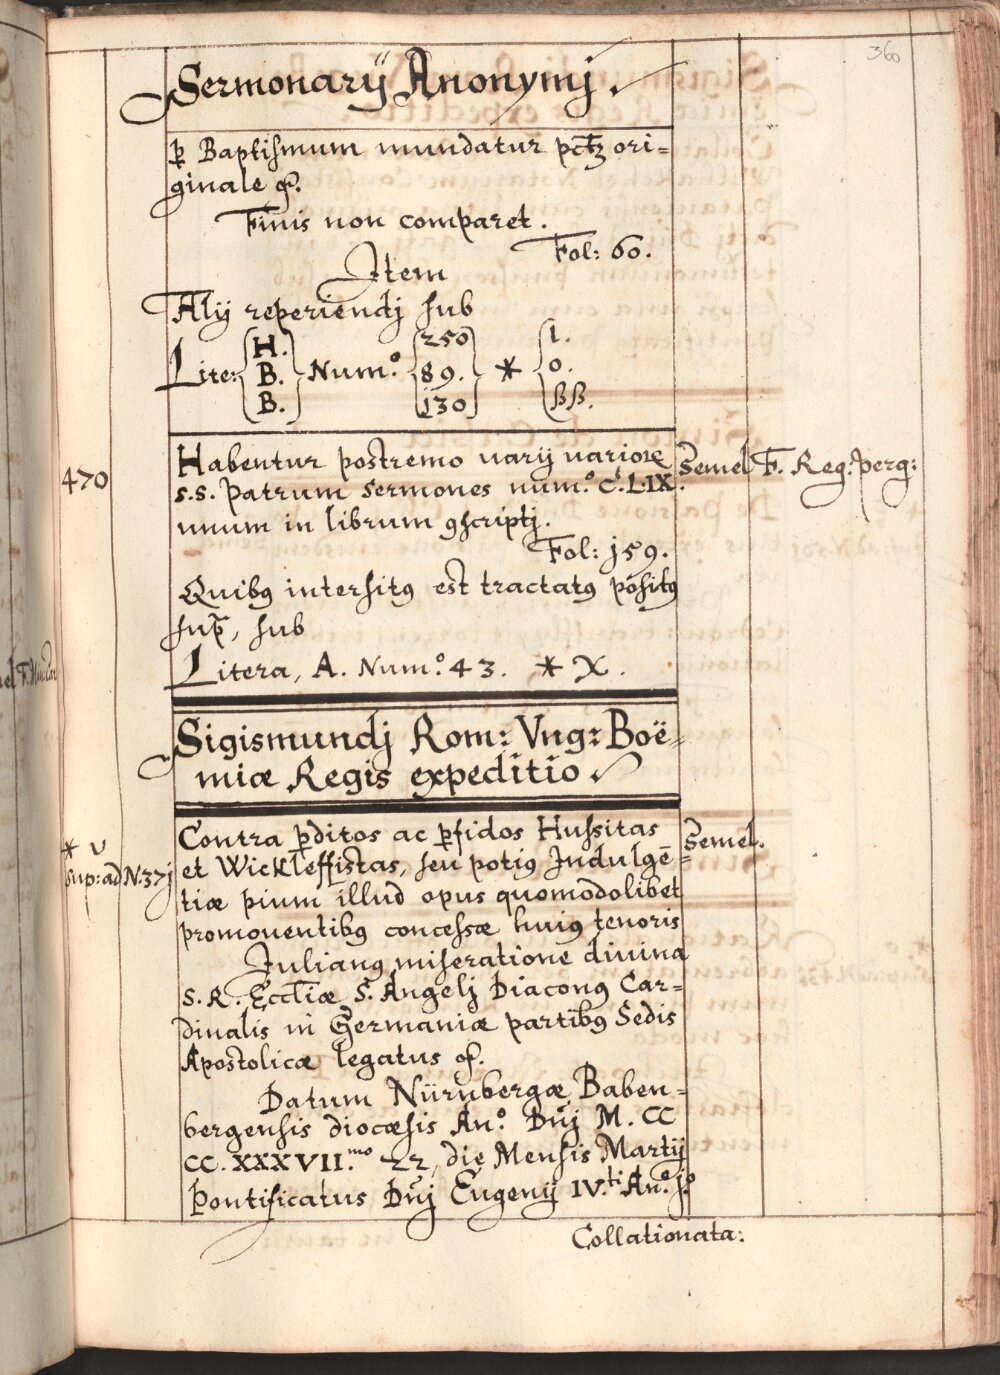 360
Sermonarij Anonymj.
ꝑ Baptismum mundatur pctꝫ ori=
ginale ꝛc.
Finis non comparet.
Fol: 60.
Item
Alij reperiendj sub
Lite: H. B. B. Num.º 250 89. 130 * 1. o. ßß.
470
Habentur postremo varij varioꝝ
s.s. Patrum sermones num.º C.LIX.
unum in librum ꝯscriptj.
Fol: j59.
Semel F. Reg: perg:
Quibꝰ intersitꝰ est tractatꝰ positꝰ
sup̄, sub
Litera, A. Num.º 43. * X.
Sigismundj Rom: Vng: Boë=
miæ Regis expeditio
* v
sup: ad N. 37j
Contra ꝑditos ac ꝑfidos Hussitas
Semel.
et Wickleffistas, seu potiꝰ Indulgē=
tiæ pium illud opus quomodolibet
promouentibꝰ concessæ huiꝰ tenoris
Julianꝰ miseratione diuina
S. R. Eccłiæ S. Angelj Diaconꝰ Car=
dinalis in Germaniæ partibꝰ Sedis
Apostolicæ legatus ꝛc.
Datum Nürnbergæ Baben=
bergensis diocæsis An.º Dnj M. CC
CC. XXXVII.mo 22, die Mensis Martij
Pontificatus Dnj Eugenij IV.ti An.º j.º
Collationata: